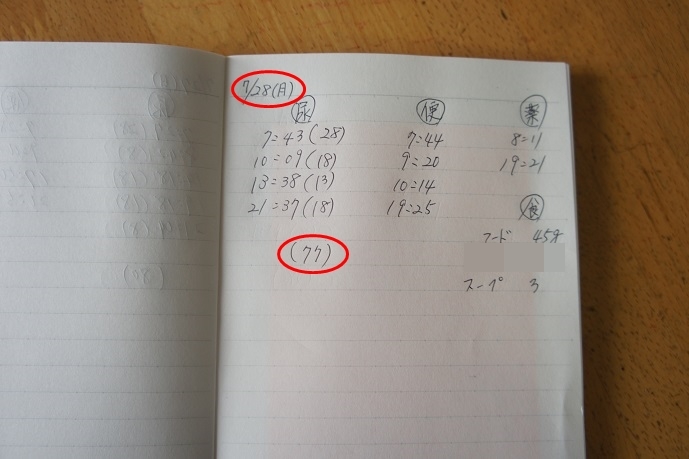 7/28(月)
尿
7:43(28)
10:09(18)
13:38(13)
21:37(18)
(77)
便
7:44
9:20
10:14
19:25
薬
8:11
19:21
食
フード 45g
スープ 3